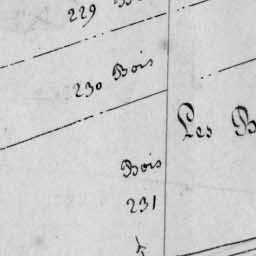 229
230 Bois
Les
Bois
231